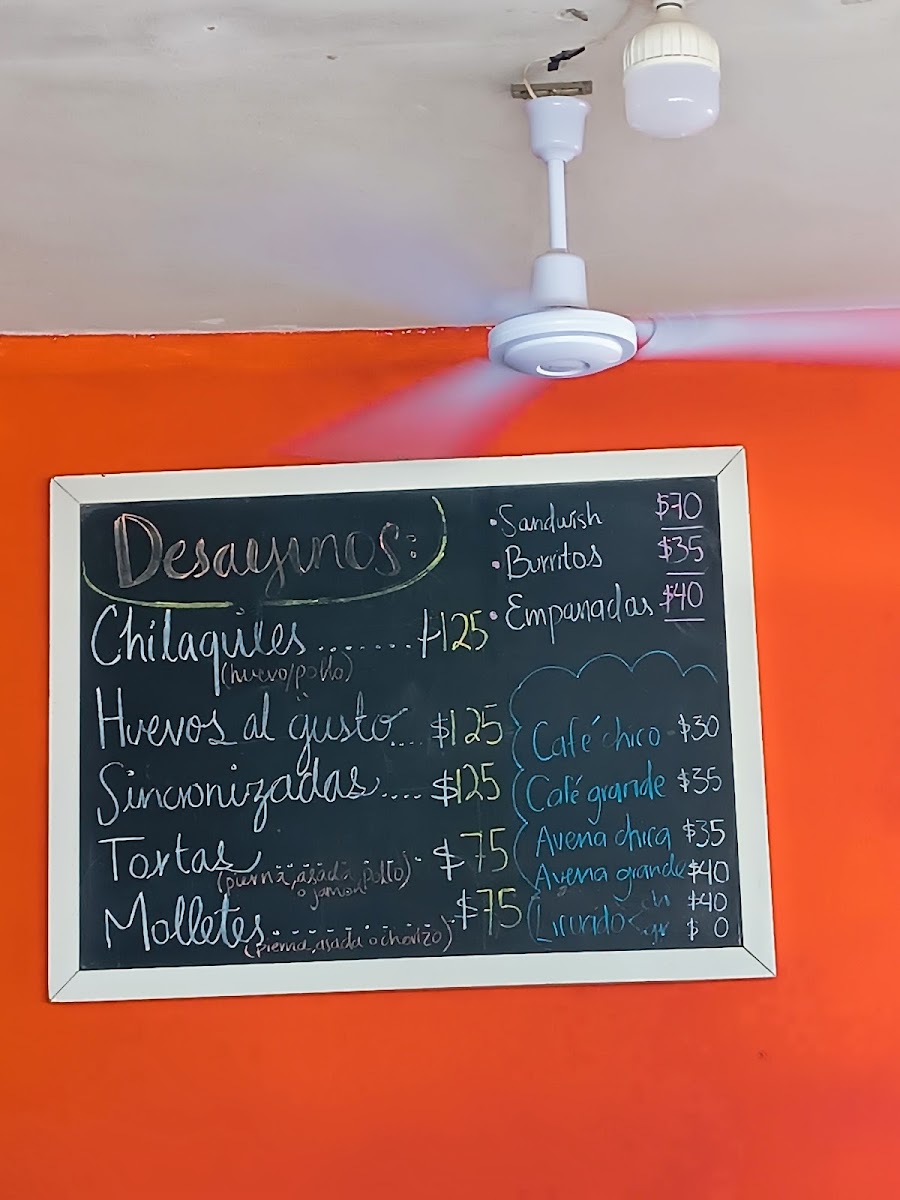 Desayunos:
Chilaquiles ........ $125
(huevo/pollo)
Huevos al gusto .... $125
Sincronizadas .... $125
Tortas ............ $75
(pierna, asada, pollo)
o jamon
Molletes ............ $75
(pierna, asada o chorizo)
• Sandwish $70
• Burritos $35
• Empanadas $40
Café chico $30
Café grande $35
Avena chica $35
Avena grande $40
ch $40
gr